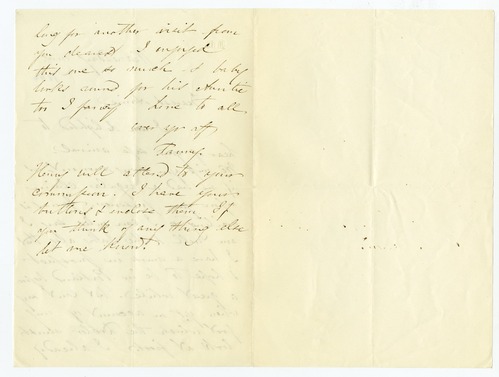 long for another visit from
you dearest I enjoyed
this one so much & baby
looks around for his Auntie
too I fancy love to all
ever yr aff
Fanny.
will attend to your
commission. I have your
buttons & inclose them. If
you think of any thing else
let me know.